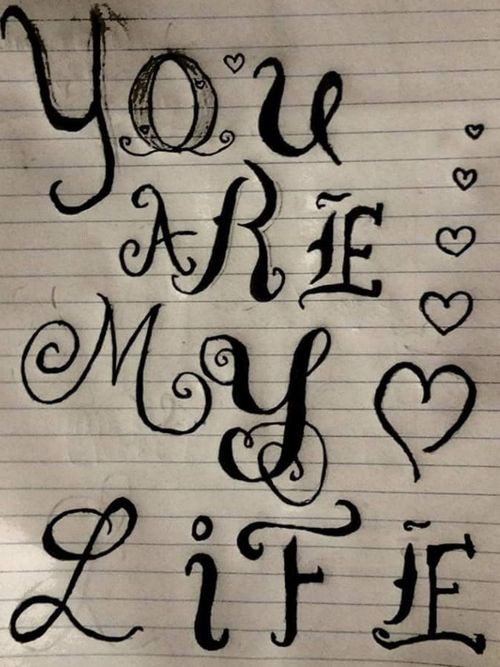 YOU
ARE
MY
LiFE